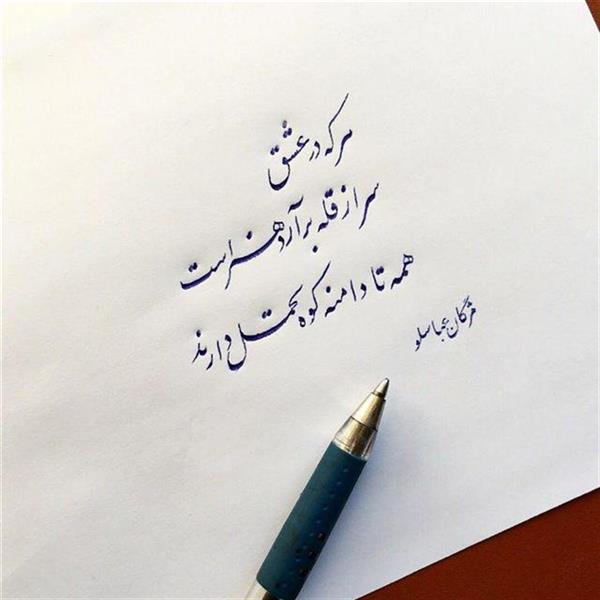 هر که در عشق
سر از قله برآرد هنر است
همه تا دامنه کوه تحمل دارند
مژگان عباسلو